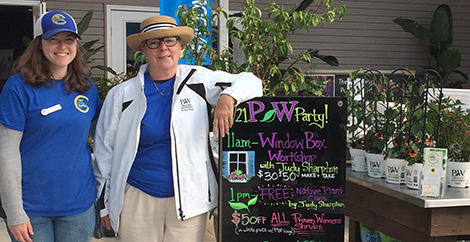 21 P&W Party!
11am - Window Box
Workshop
with Judy Sharpton
$30 $50 MAKE & TAKE
1pm - FREE Native Plant
by Judy Sharpton
$5 OFF ALL Proven Winners
Shrubs
P&W
P&W
P&W
P&W